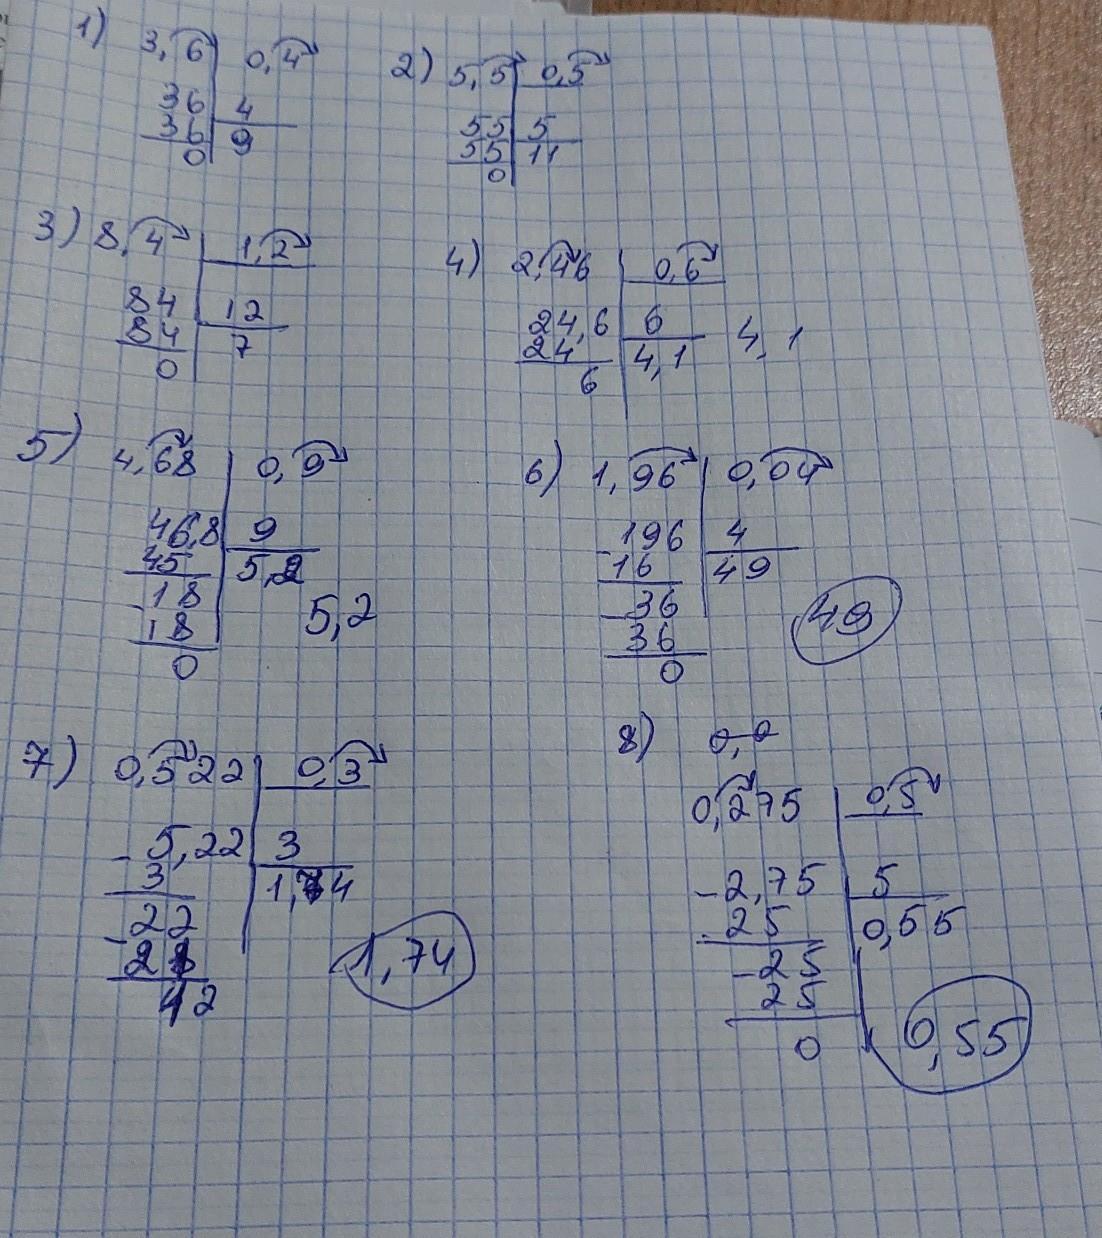 1) 3,6 0,4
36 4
36 9
0
2) 5,5 0,5
55 5
55 11
0
3) 8,4 1,2
84 12
84 7
0
4) 2,46 0,6
24,6 6
24 4,1 4,1
6
5) 4,68 0,9
46,8 9
45 5,2
18
18 5,2
0
6) 1,96 0,04
-196 4
16 49
-36
36 49
0
7) 0,522 0,3
-5,22 3
3 1,74
-22
21 1,74
12
8) 0,0
0,275 0,5
-2,75 5
25 0,55
-25
25
0 0,55